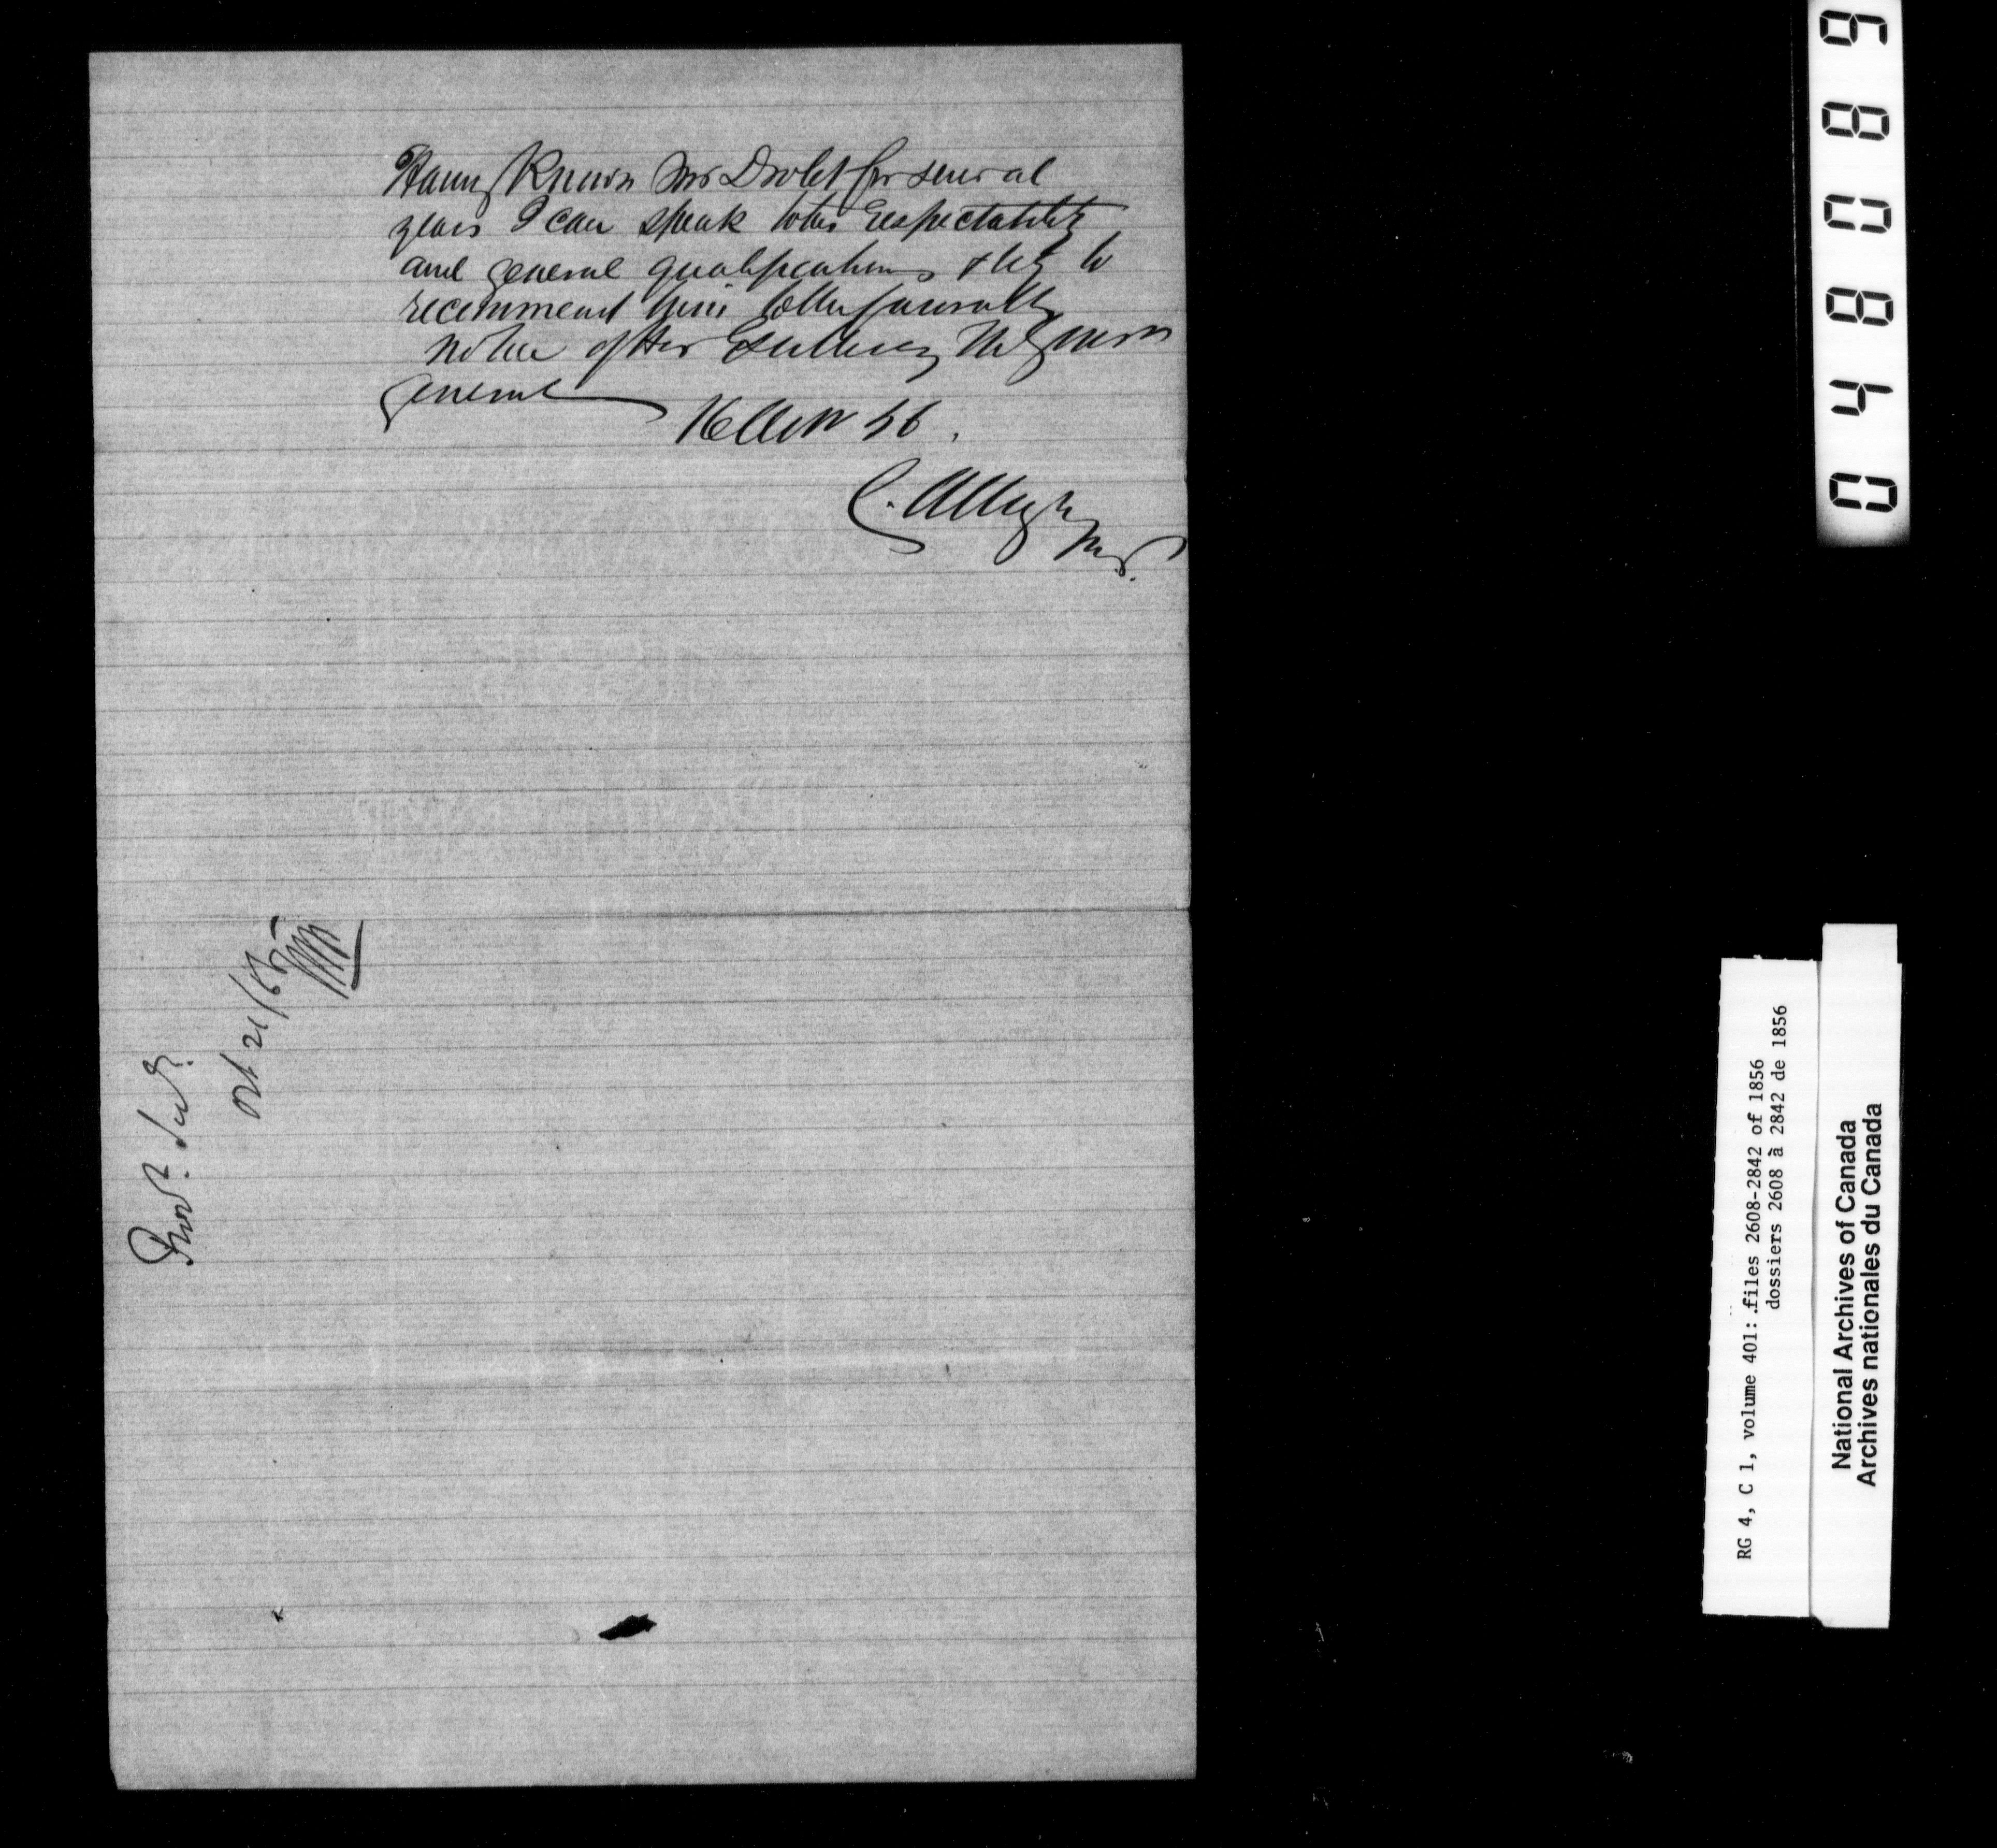 Having Known Mr Drolet for several
years I can speak to his respectability
and general qualifications & beg to
recommend him to the favorable
notice of His Excellency The Governor
General
16 Oct 56.
C. Alleyn
M.P.
Prov. Secy.
Oct 21/56
048089
RG 4, C 1, volume 401: files 2608-2842 of 1856
dossiers 2608 à 2842 de 1856
National Archives of Canada
Archives nationales du Canada